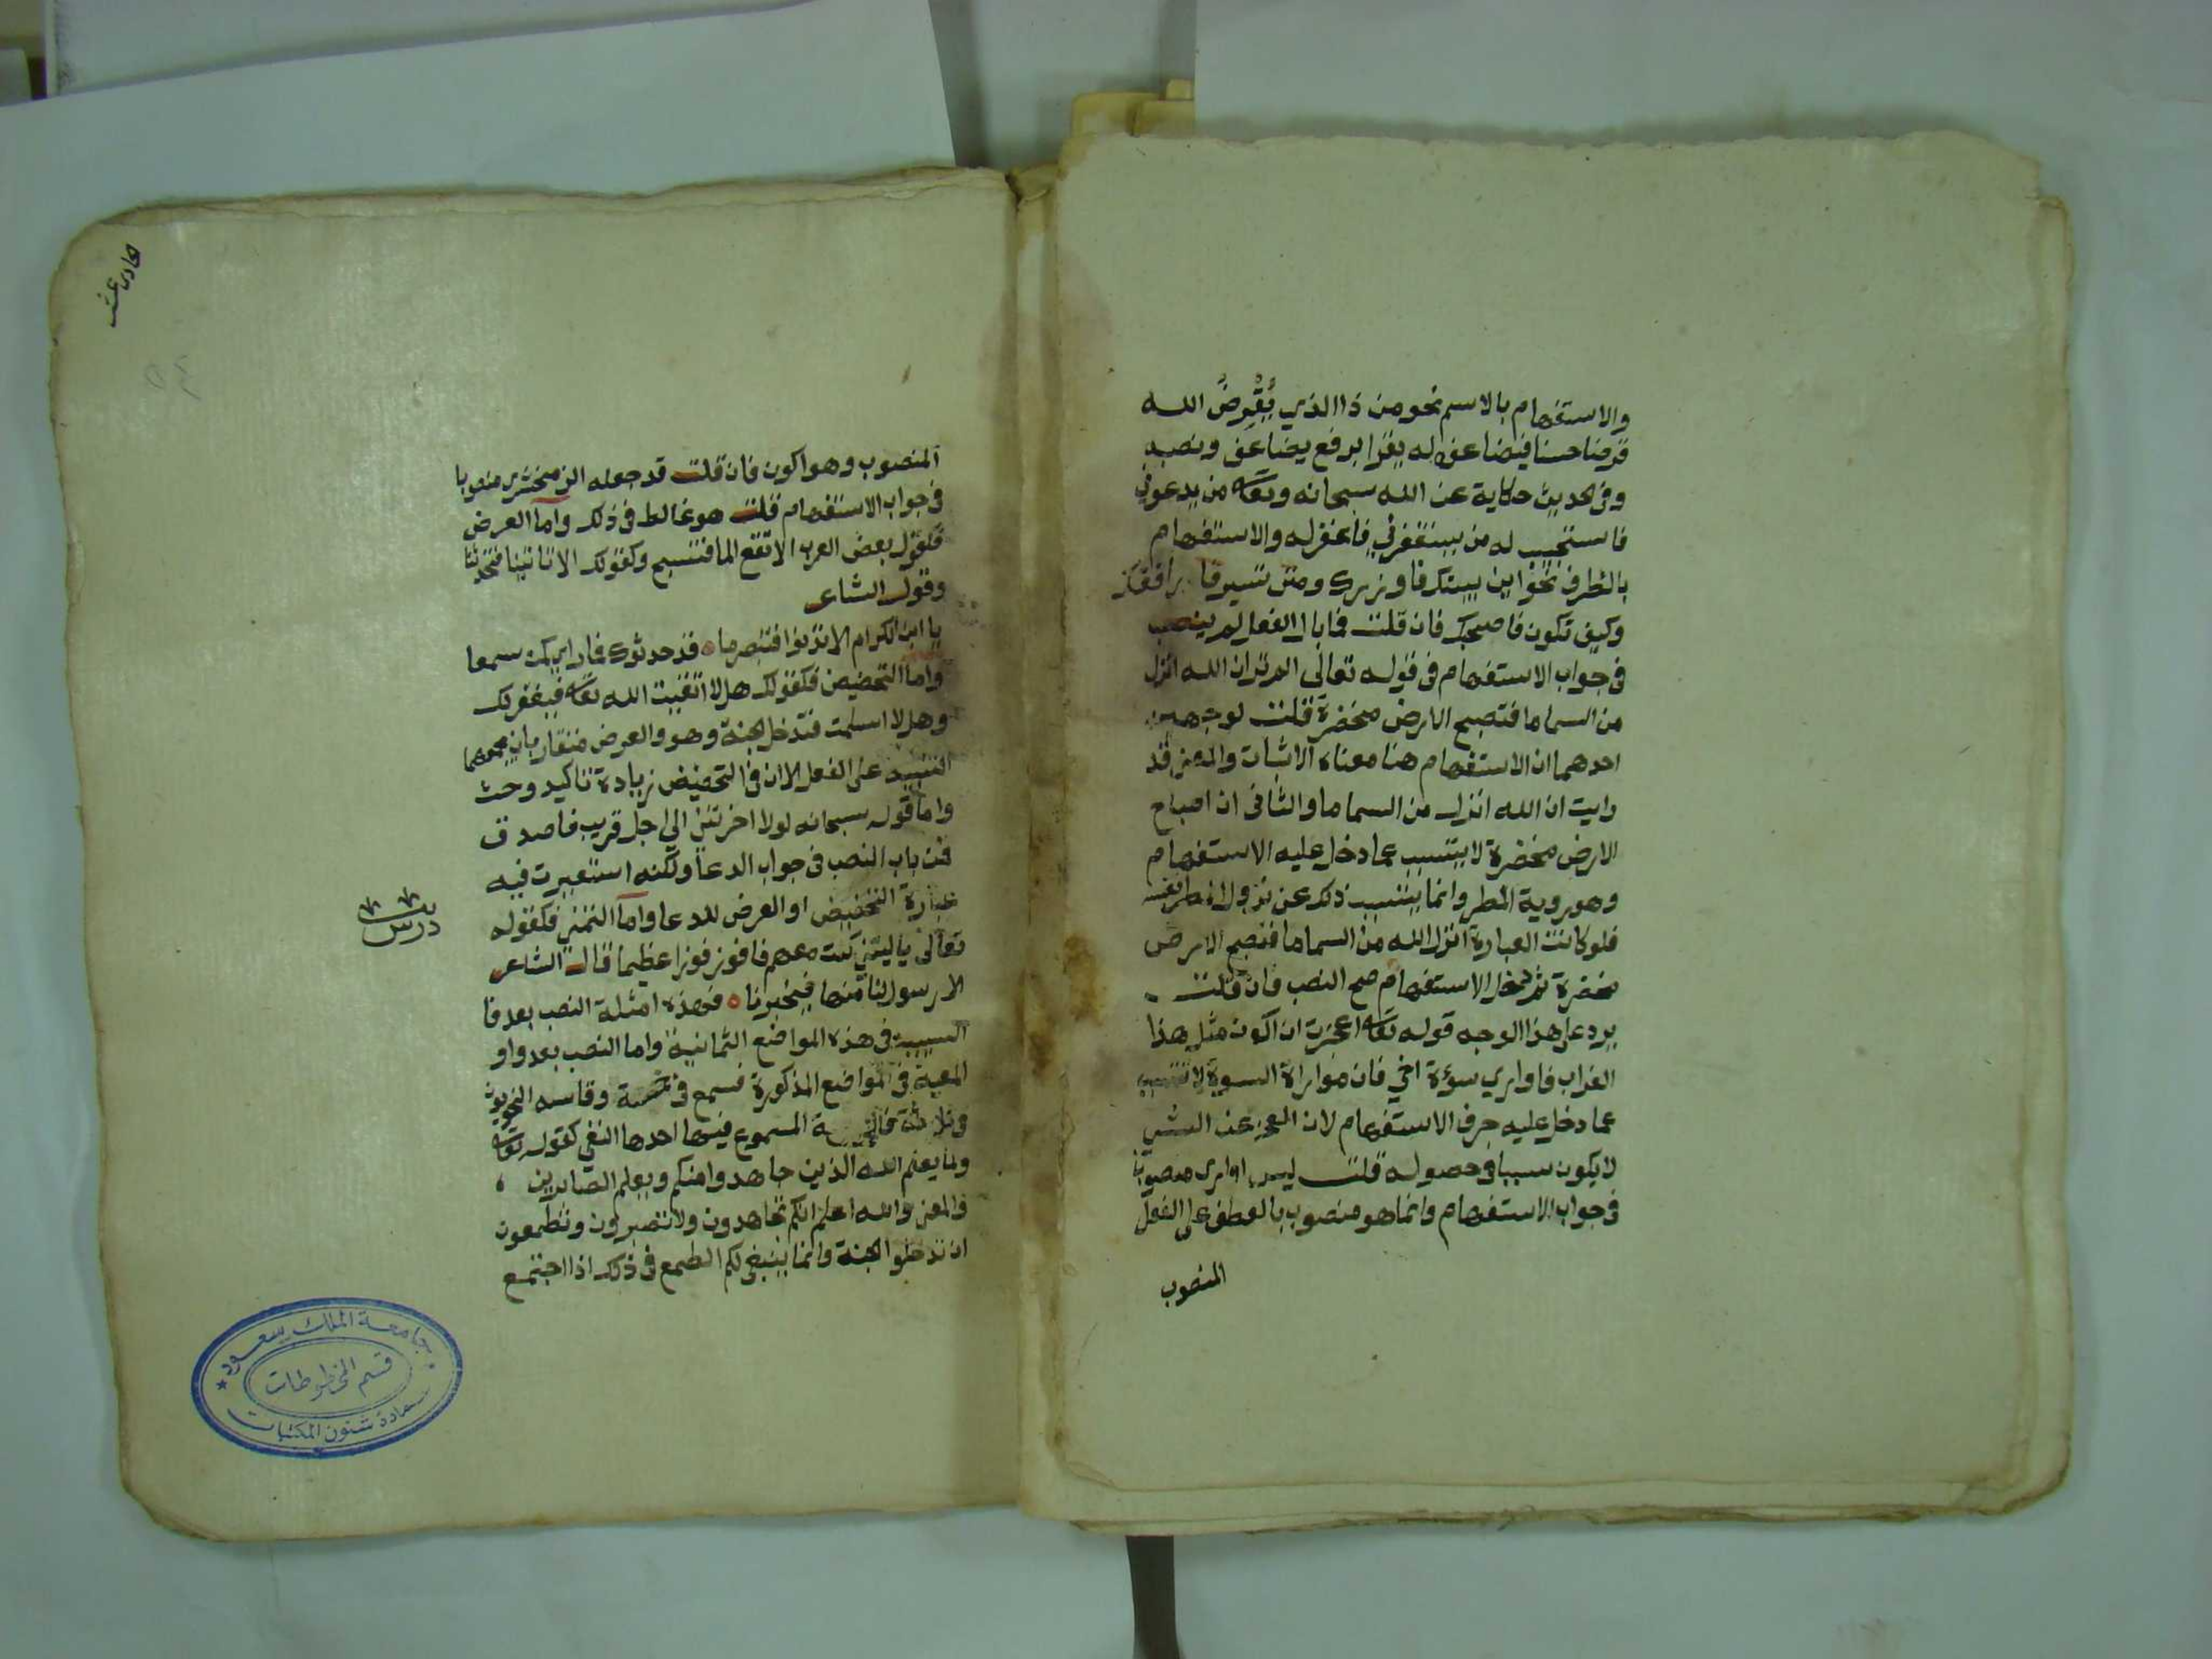 والاستفهام بالاسم نحو من ذا الذي يُقْرِضُ الله
قرضا حسنا فيضاعفه له يقرا برفع يضاعف ونصبه
وفي الحديث حكاية عن الله سبحانه وتعا من يدعوني
فاستجيب له من يستغفرني فاغفر له والاستفهام
بالظرف نحو اين بيتك فازورك ومتى تسير فارافقك
وكيف تكون فاصحبك فان قلت فما بال الفعل لم ينصب
في جواب الاستفهام في قوله تعالى الم تر ان الله انزل
من السما ما فتصبح الارض مخضرة قلت لوجهين
احدهما ان الاستفهام هنا معناه الاثبات والمعنى قد
رايت ان الله انزل من السما ما والثاني ان اصباح
الارض مخضرة لا يتسبب عما دخل عليه الاستفهام
وهو روية المطر وانما يتسبب ذلك عن نزول المطر نفسه
فلو كانت العبارة انزل الله من السما ما فتصبح الارض
مخضرة ثم دخل الاستفهام صح النصب فان قلت
يرد على هذا الوجه قوله تعا اعجزت ان اكون مثل هذا
الغراب فاواري سؤة اخي فان مواراة السوة لا تتسبب
عما دخل عليه حرف الاستفهام لان العجز عن الشي
لا يكون سببا في حصوله قلت ليس اواري منصوبا
في جواب الاستفهام وانما هو منصوب بالعطف على الفعل
المنصوب
حادي عشر
المنصوب وهو اكون فان قلت قد جعله الزمخشري منصوبا
في جواب الاستفهام قلت هو غالط في ذلك واما العرض
فكقول بعض العرب الا تقع الما فتسبح وكقولك الا تاتينا فتحدثنا
وقول الشاعر
يا ابن الكرام الا تدنوا فتبصر ما ه قد حدثوك فما راي كمن سمعا
واما التحضيض فكقولك هلا اتقيت الله تعا فيغفر لك
وهلا اسلمت فتدخل الجنة وهو والعرض متقاربان يجمعهما
التنبيه على الفعل الا ان في التحضيض زيادة تاكيد وحث
واما قوله سبحانه لولا اخرتني الى اجل قريب فاصدق
فمن باب النصب في جواب الدعا ولكنه استعيرت فيه
عبارة التحضيض او العرض للدعا واما التمني فكقوله
تعالى يا ليتني كنت معهم فافوز فوزا عظيما قال الشاعر
الا رسول لنا منها فيخبرنا ه فهذه امثلة النصب بعد فا
السببية في هذه المواضع الثمانية واما النصب بعد واو
المعية في المواضع المذكورة فسمع في خمسة وقاسه النحويون
في ثلاثة فالخمسة المسموع فيها احدها النفي كقوله تعا
ولما يعلم الله الذين جاهدوا منكم ويعلم الصابرين
والمعنى والله اعلم انكم تجاهدون ولا تصبرون وتطمعون
ان تدخلوا الجنة وانما ينبغي لكم الطمع في ذلك اذا اجتمع
درس
جامعة الملك سعود
قسم المخطوطات
عمادة شئون المكتبات